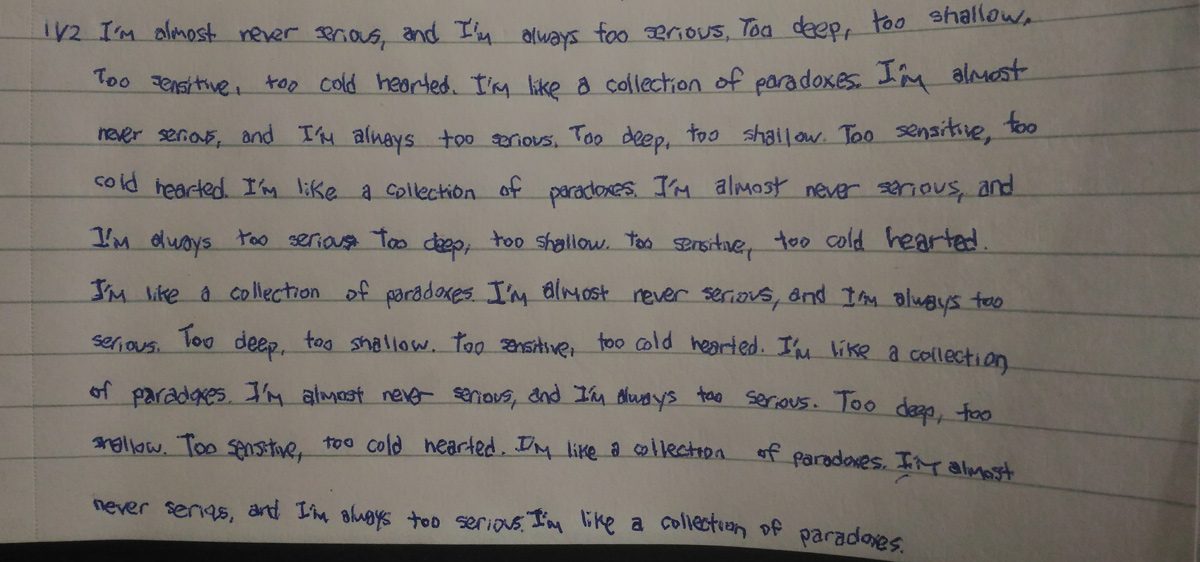 1V2 I'm almost never serious, and I'm always too serious. Too deep, too shallow.
Too sensitive, too cold hearted. I'm like a collection of paradoxes. I'm almost
never serious, and I'm always too serious. Too deep, too shallow. Too sensitive, too
cold hearted. I'm like a collection of paradoxes. I'm almost never serious, and
I'm always too serious Too deep, too shallow. Too sensitive, too cold hearted.
I'm like a collection of paradoxes. I'm almost never serious, and I'm always too
serious. Too deep, too shallow. Too sensitive, too cold hearted. I'm like a collection
of paradoxes. I'm almost never serious, and I'm always too serious. Too deep, too
shallow. Too sensitive, too cold hearted. I'm like a collection of paradoxes. I'm almost
never serious, and I'm always too serious. I'm like a collection of paradoxes.